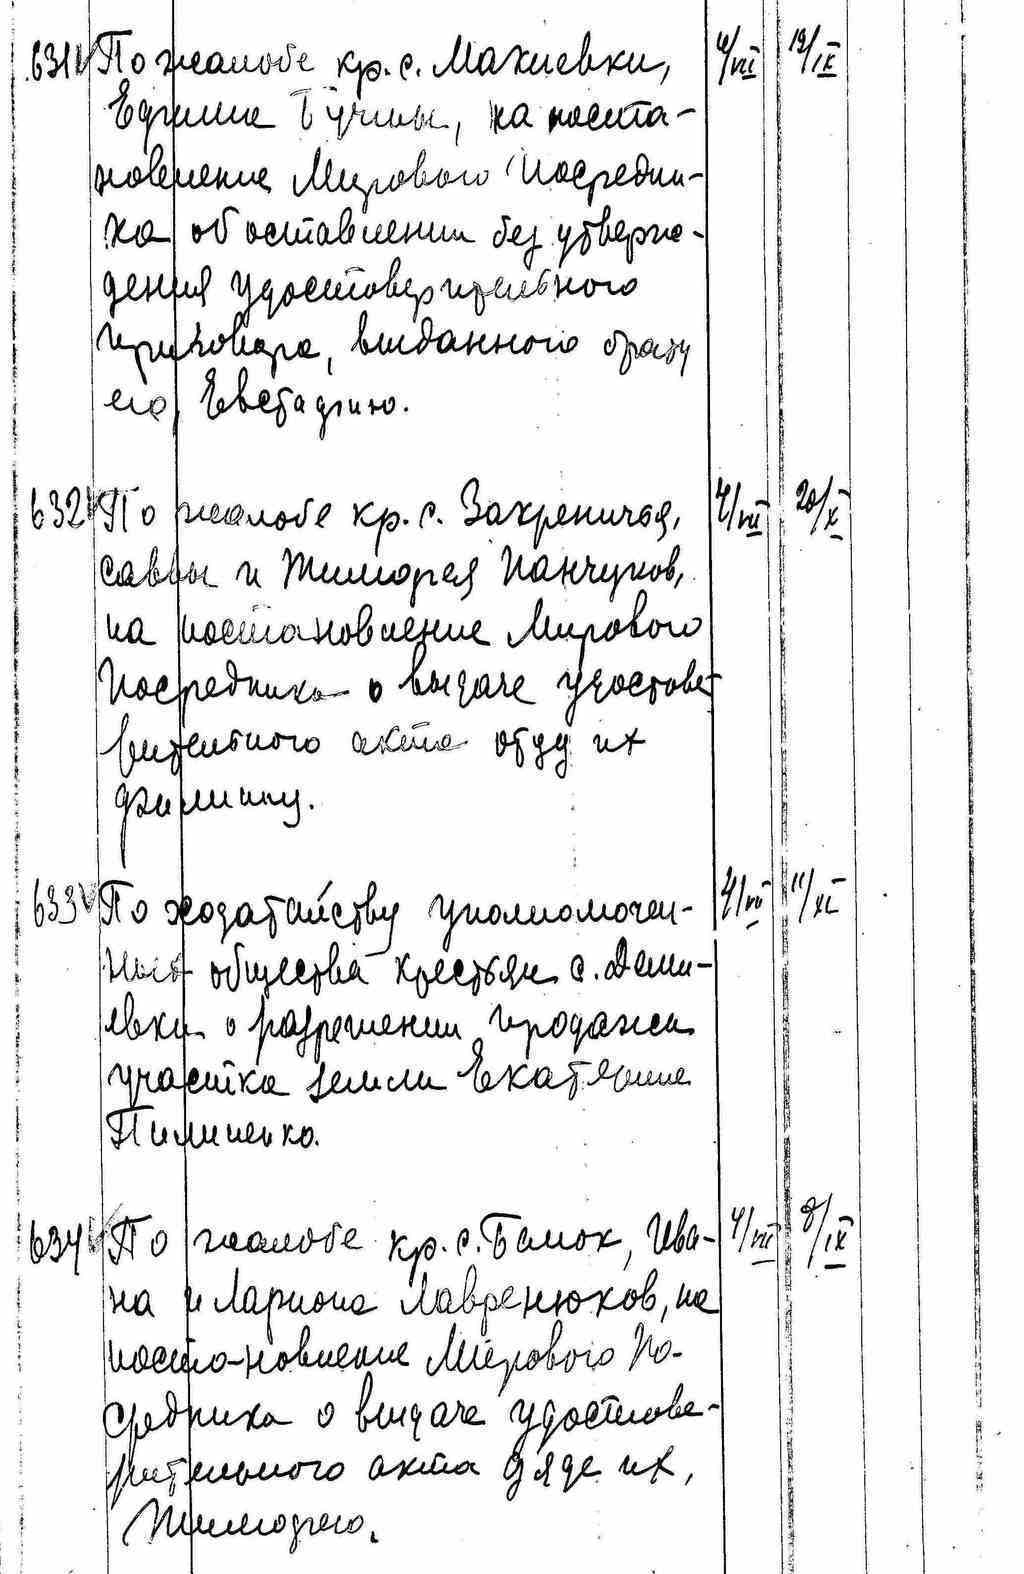 631 По жалобе кр. с. Махиевки, 4/VII 19/IX
Ефима Бучмы, на поста-
новление Мирового Посредни-
ка об оставлении без утверж-
дения удостоверительного
приговора, выданного брату
его, Евстафию.
632 По жалобе кр. с. Захреничья, 4/VII 20/X
Саввы и Тимофея Панчуков,
на постановление Мирового
Посредника о выдаче удостове-
рительного акта отцу их
Филиппу.
633 По ходатайству уполномочен- 4/VII 11/XI
ных общества крестьян с. Деми-
евки о разрешении продажи
участка земли Екатерине
Пилипенко.
634 По жалобе кр. с. Бамок, Ива- 4/VII 8/IX
на и Лариона Лавренюков, на
постановление Мирового По-
средника о выдаче удостове-
рительного акта дяде их,
Тимофею.